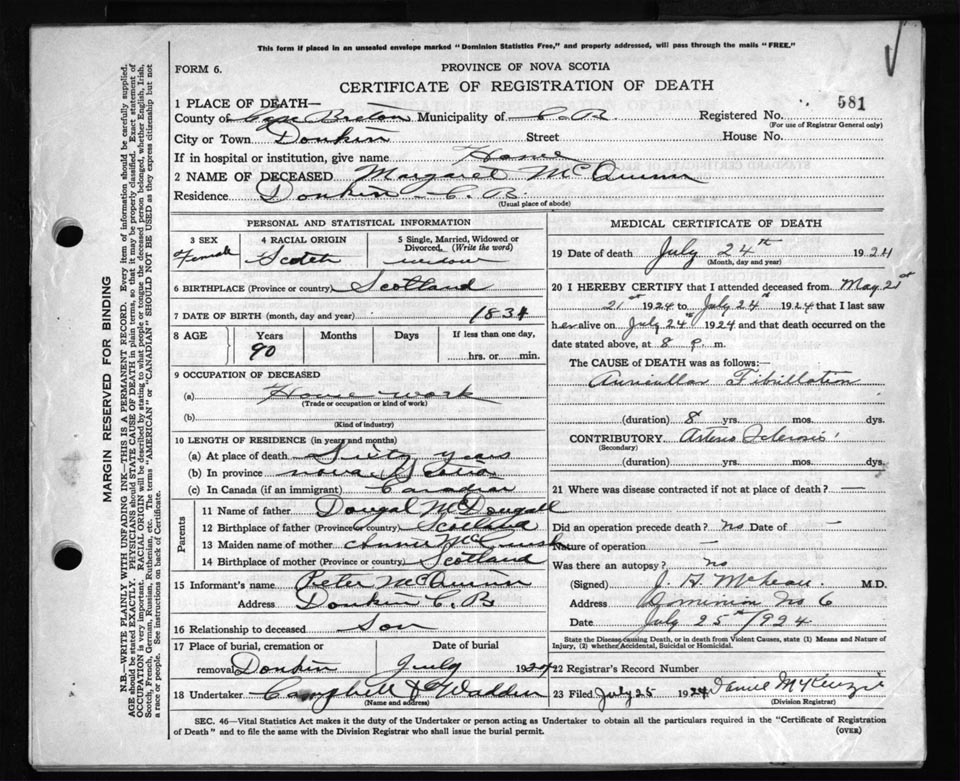 This form if placed in an unsealed envelope marked "Dominion Statistics Free," and properly addressed, will pass through the mails "FREE."
FORM 6.
PROVINCE OF NOVA SCOTIA
CERTIFICATE OF REGISTRATION OF DEATH
581
1 PLACE OF DEATH—
County of Cape Breton Municipality of C.B. Registered No.
(For use of Registrar General only)
City or Town Donkin Street House No.
If in hospital or institution, give name Home
2 NAME OF DECEASED Margaret McQuinn
Residence Donkin C.B.
(Usual place of abode)
PERSONAL AND STATISTICAL INFORMATION
3 SEX Female
4 RACIAL ORIGIN Scotch
5 Single, Married, Widowed or Divorced. (Write the word) widow
6 BIRTHPLACE (Province or country) Scotland
7 DATE OF BIRTH (month, day and year) 1834
8 AGE Years 90 Months Days If less than one day, hrs. or min.
9 OCCUPATION OF DECEASED
(a) House work
(Trade or occupation or kind of work)
(b)
(Kind of industry)
10 LENGTH OF RESIDENCE (in years and months)
(a) At place of death Sixty years
(b) In province Nova Scotia
(c) In Canada (if an immigrant) Canadian
Parents
11 Name of father Dougal McDougall
12 Birthplace of father (Province or country) Scotland
13 Maiden name of mother Annie
14 Birthplace of mother (Province or country) Scotland
15 Informant's name Peter McQuinn
Address Donkin C.B
16 Relationship to deceased Son
17 Place of burial, cremation or removal Donkin
Date of burial July 1924
18 Undertaker Campbell & Wadden
(Name and address)
MEDICAL CERTIFICATE OF DEATH
19 Date of death July 24th 1924
(Month, day and year)
20 I HEREBY CERTIFY that I attended deceased from May 21st
21st 1924 to July 24th 1924 that I last saw
her alive on July 24th 1924 and that death occurred on
date stated above, at 8 P. m.
The CAUSE of DEATH was as follows:—
Auricullar Fibrillation
(duration) 8 yrs. mos. dys.
CONTRIBUTORY Arterio Sclerosis
(Secondary)
(duration) yrs. mos. dys.
21 Where was disease contracted if not at place of death? —
Did an operation precede death? No Date of —
Nature of operation —
Was there an autopsy? no
(Signed) J. H. McLean M.D.
Address Dominion No 6
Date July 25th 1924
State the Disease causing Death, or in death from Violent Causes, state (1) Means and Nature of
Injury, (2) whether Accidental, Suicidal or Homicidal.
22 Registrar's Record Number
23 Filed July 25 1924 McKenzie
(Division Registrar)
SEC. 46—Vital Statistics Act makes it the duty of the Undertaker or person acting as Undertaker to obtain all the particulars required in the "Certificate of Registration
of Death" and to file the same with the Division Registrar who shall issue the burial permit.
(OVER)
MARGIN RESERVED FOR BINDING
N.B.—WRITE PLAINLY WITH UNFADING INK—THIS IS A PERMANENT RECORD. Every item of information should be carefully supplied.
AGE should be stated EXACTLY. PHYSICIANS should STATE CAUSE OF DEATH in plain terms, so that it may be properly classified. Exact statement of
OCCUPATION is very important. RACIAL ORIGIN will be described by stating to what people or tongue the deceased person belonged, whether English, Irish,
Scotch, French, German, Russian, Ruthenian, etc. The terms "AMERICAN" or "CANADIAN" SHOULD NOT BE USED as they express citizenship but not
a race or people. See instructions on back of Certificate.